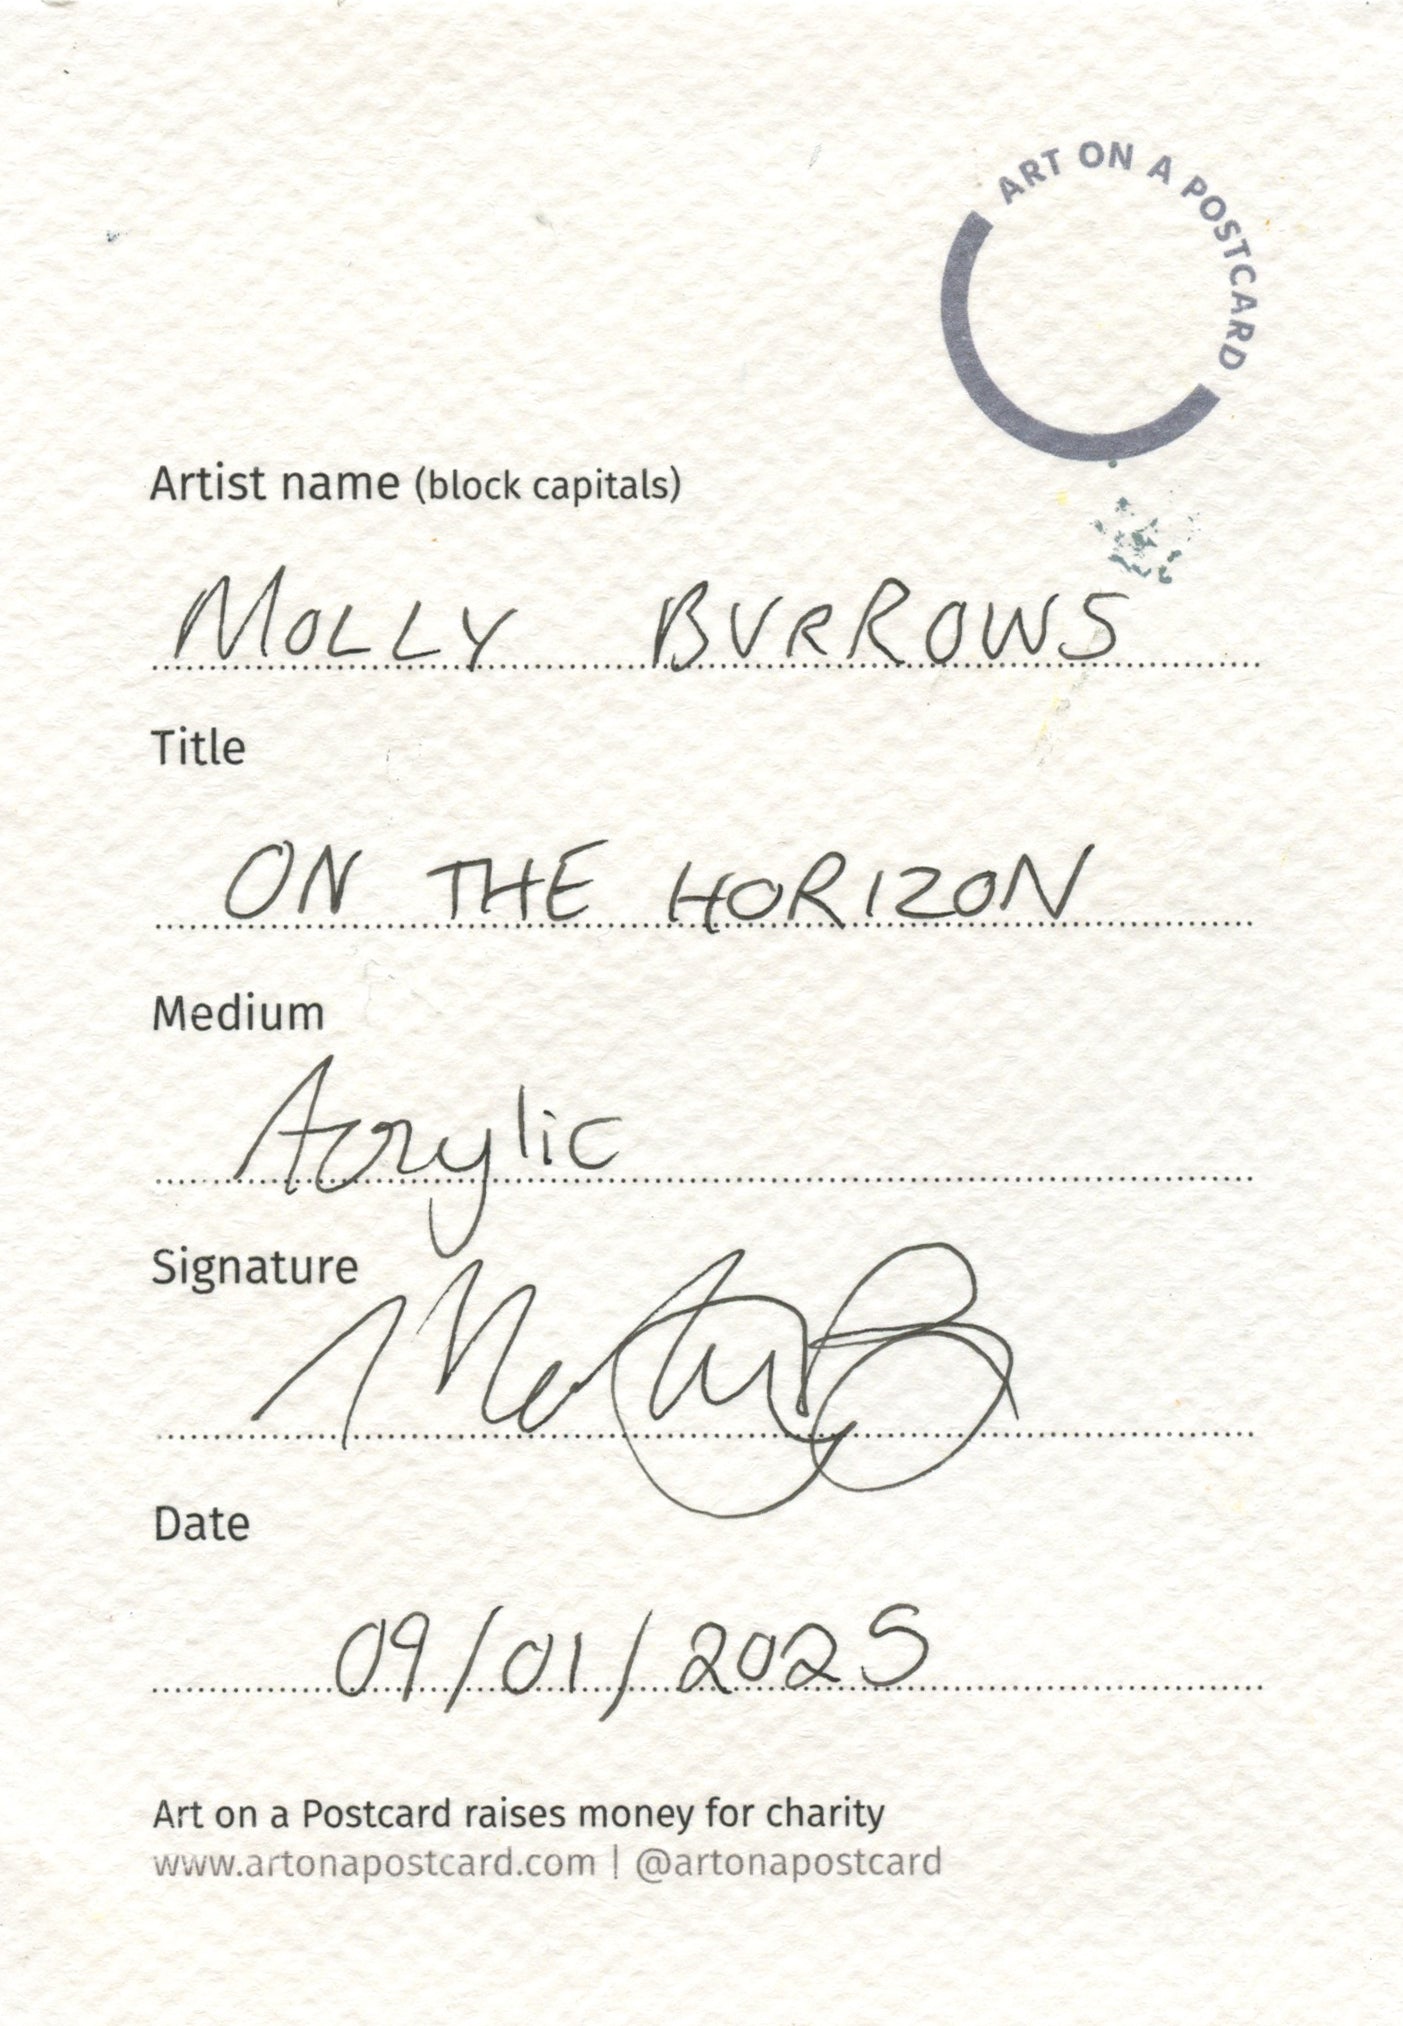 ART ON A POSTCARD
Artist name (block capitals)
MOLLY BURROWS
Title
ON THE HORIZON
Medium
Acrylic
Signature
Date
09/01/2025
Art on a Postcard raises money for charity
www.artonapostcard.com | @artonapostcard